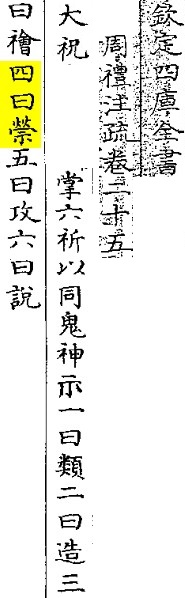 欽定四庫全書
周禮注疏卷二十五
大祝 掌六祈以同鬼神示一曰類二曰造三
曰禬四曰禜五曰攻六曰說